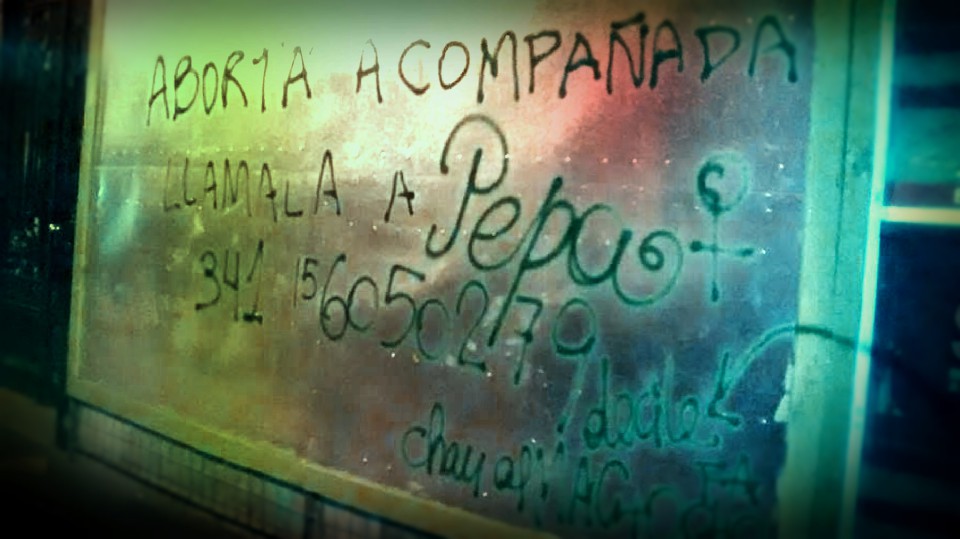 ABORTÁ ACOMPAÑADA
LLAMALA A Pepa
341 156050270
decile
chau al